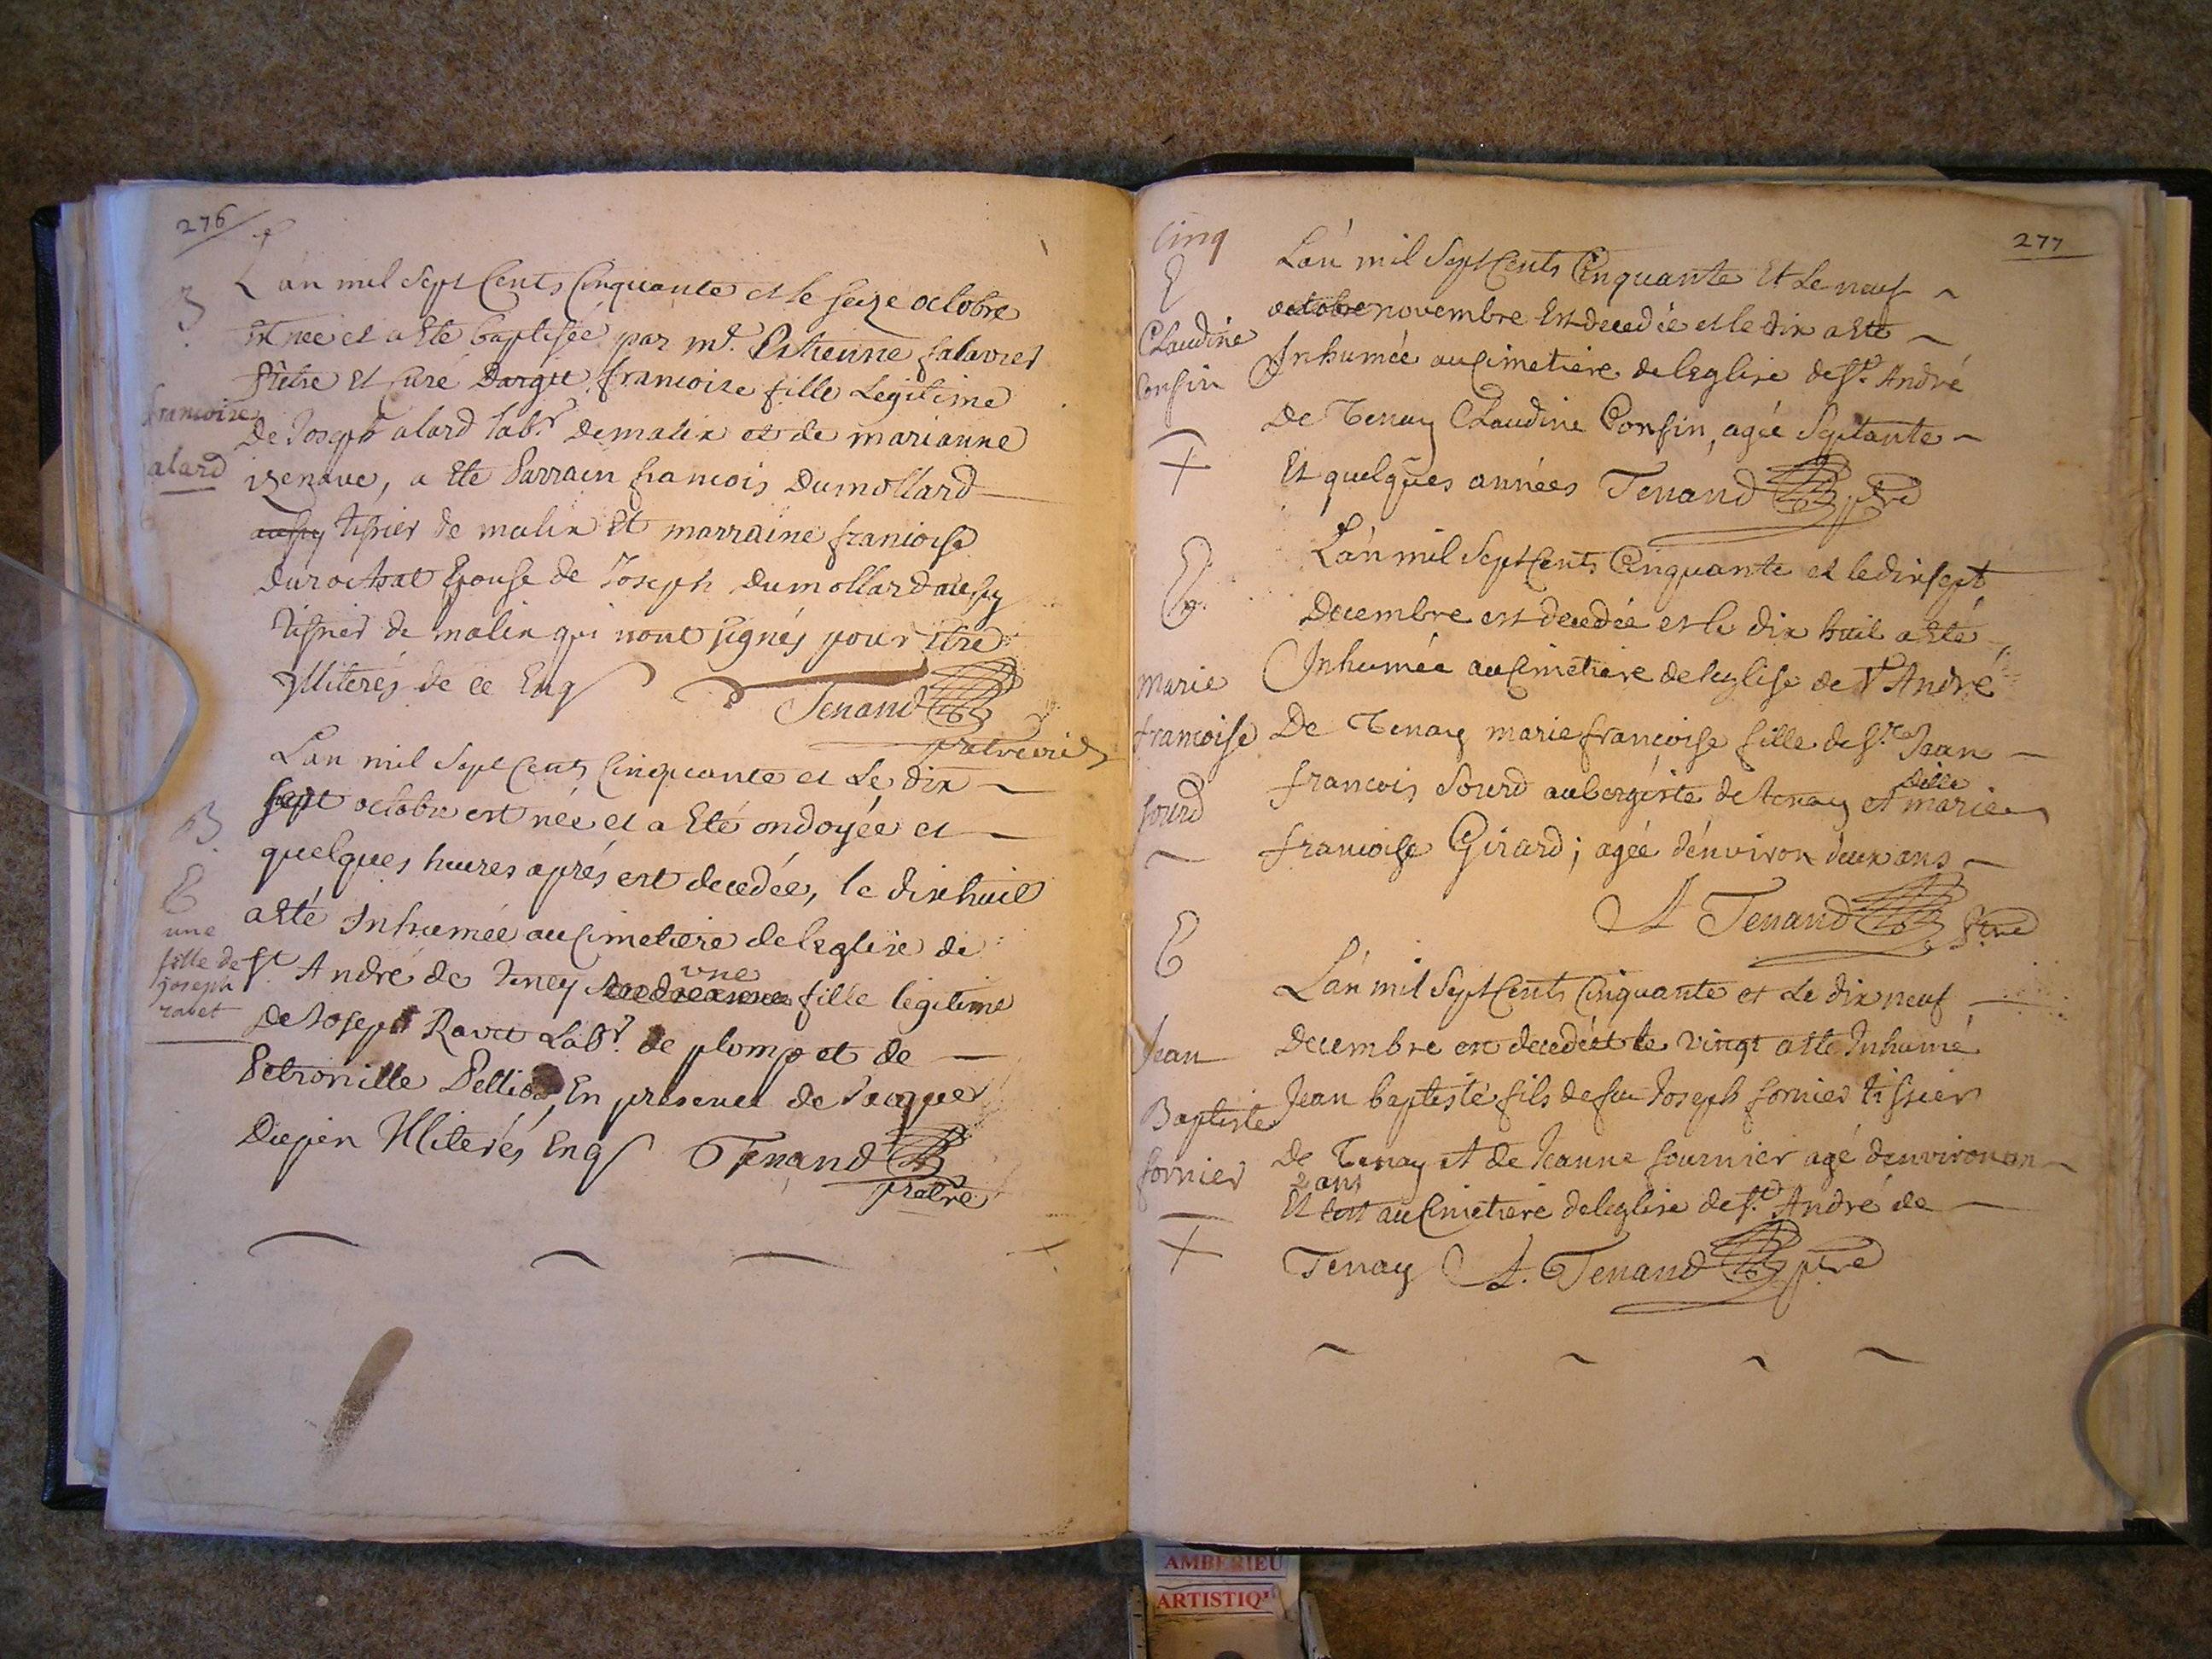 276
L'an mil sept Cents Cinquante et le seize octobre
est née et a Eté baptisée par mr. Estienne
prêtre Et Curé Dargit francoise fille Legitime
De Joseph alard labr. de malix et de marianne
izenave, a Ete Parrain francois Dumollard
tissier de malix Et marraine francoise
durochat Epouse de Joseph Dumollard aussy
tissier de malix qui n'ont signés pour être
Illiterés de ce Enq
Tenand
francoise
alard
Lan mil Sept Cents Cinquante et Le dix
sept octobre est née et a Eté ondoyée et
quelques heures aprés est decedée, le dixhuit
a Eté Inhumée au Cimetiere de leglise de
St. André de Teney une fille legitime
De Joseph Ravet Labr. de plomp et de
Petronille En presence de Jacques
Dupin Illiterés Enq Tenand
pretre
B.
E
une
fille de
joseph
ravet
277
Cinq
L'an mil Sept Cents Cinquante Et Le neuf
octobre novembre Est decedée et le dix a Eté
Inhumée au Cimetiere de leglise de St. André
De Tenay Claudine Consin, agée Septante
Et quelques années Tenand ptre
E
Claudine
Consin
L'an mil Sept Cents Cinquante et le dix sept
Decembre est decedée et le dix huit a Eté
Inhumée au Cimetiere de leglise de St André
De Tenay marie françoise fille de Sr. Jean
francois Sourd aubergiste de tenay et dlle marie
francoise Girard; agée d'environ deux ans
A Tenand Ptre
E
marie
francoise
sourd
L'an mil Sept Cents Cinquante et Le dix neuf
Decembre est decedé et le vingt a Eté Inhumé
Jean baptiste fils de feu Joseph fornier tissier
De Tenay et de Jeanne fournier agé d'environ
2 ans
Et au Cimetiere de leglise de St. André de
Tenay A. Tenand ptre
E
Jean
Baptiste
fornier
AMBERIEU
ARTISTIQ